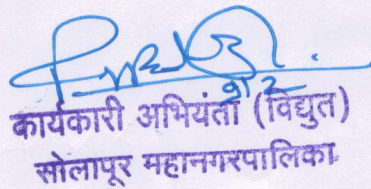 कार्यकारी अभियंता (विद्युत)
सोलापूर महानगरपालिका